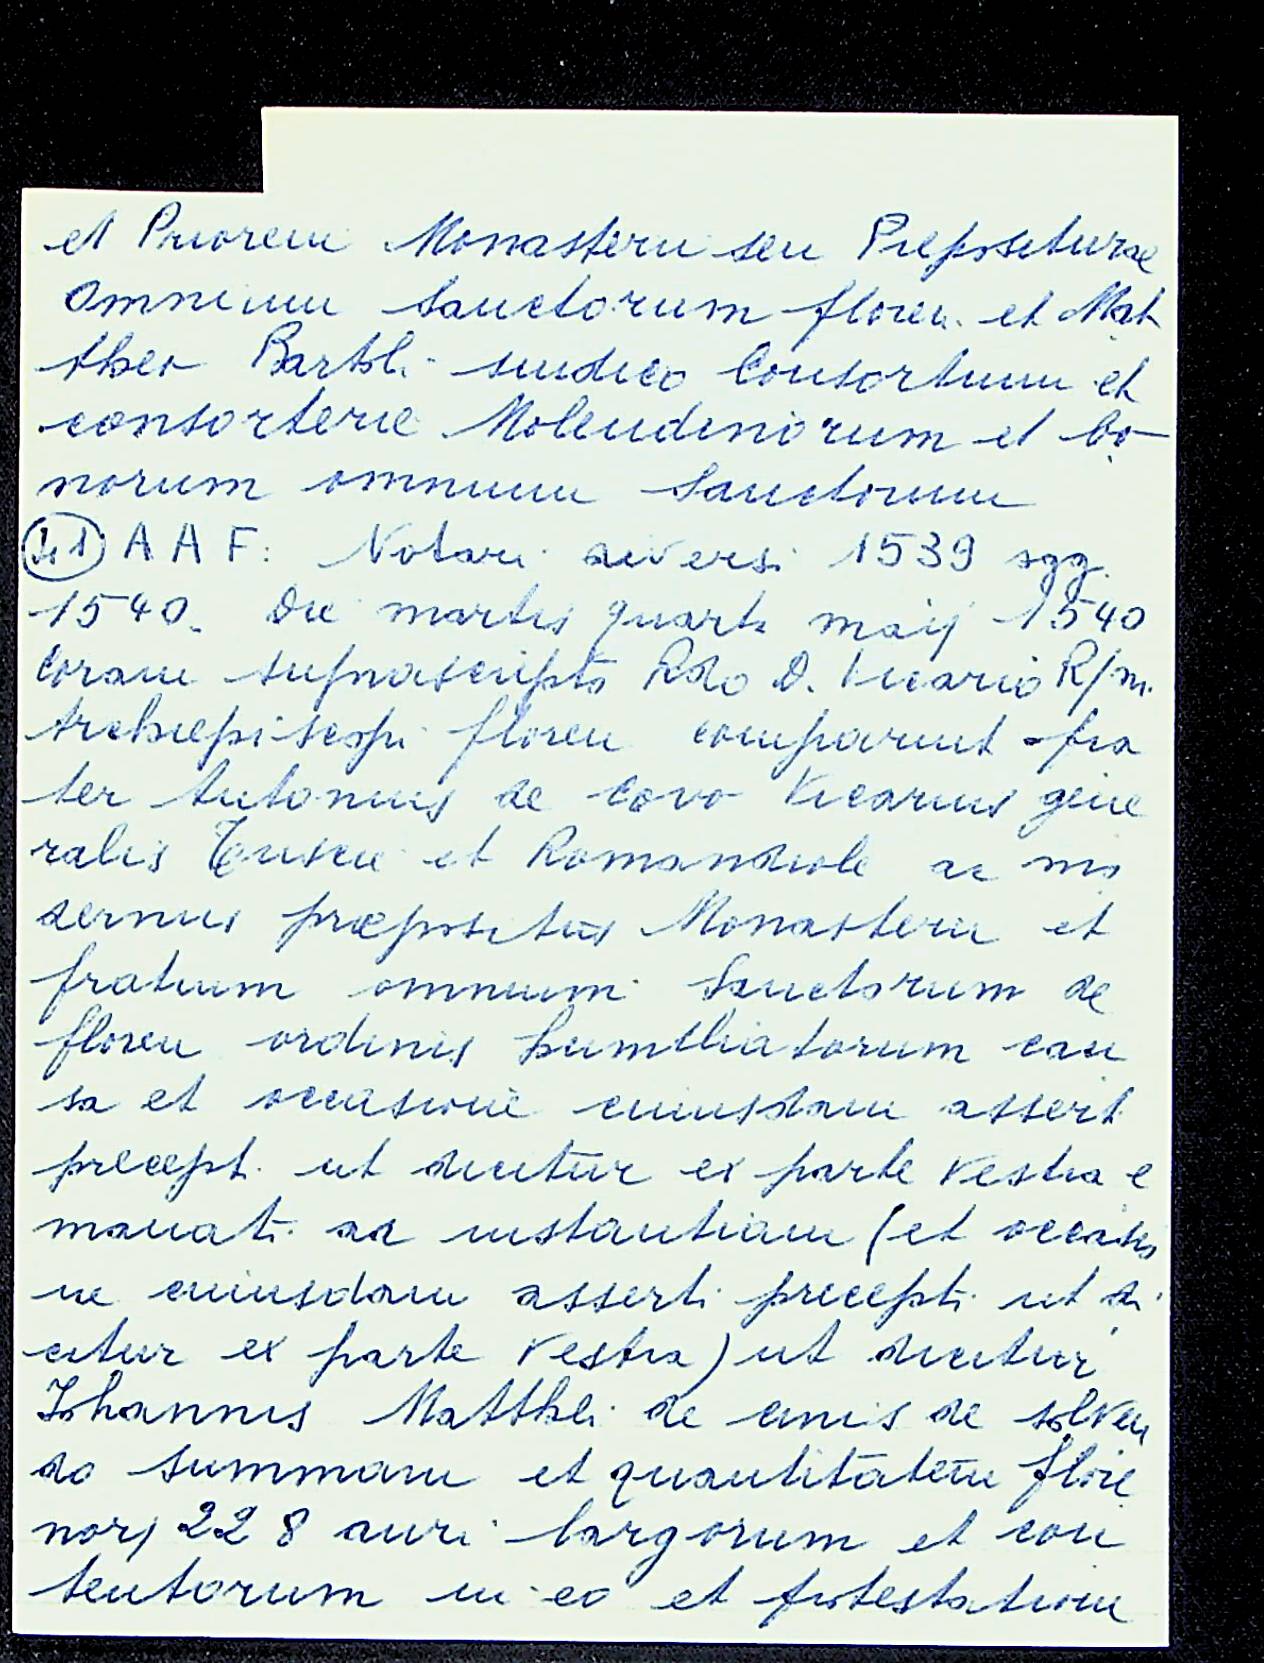 et Priorem Monasterii seu Prepositurae
Omnium Sanctorum floren. et Mat
theo Bartoli sindico Consortium et
consorterie Molendinorum et bo
norum omnium Sanctorum
AAF: Notari diversi 1539 sgg.
1540. Die martis quarta maij 1540
Coram suprascripto Rdo D. Vicario R/m.
Archiepiscopi floren comparuit fra
ter Antonius de Covo Vicarius gene
ralis Tuscie et Romandiole ac mo
dernus præpositus Monasterii et
fratrum omnium Sanctorum de
floren ordinis humiliatorum cau
sa et occasione cuiusdam assert
precept. ut dicitur ex parte vestra e
manati ad instantiam (et occasio
ne cuiusdam asserti precepti ut di
citur ex parte vestra) ut dicitur
Johannis Matthei de cinis de solven
do summam et quantitatem flore
nor, 228 auri largorum et con
tentorum in eo et protestatione